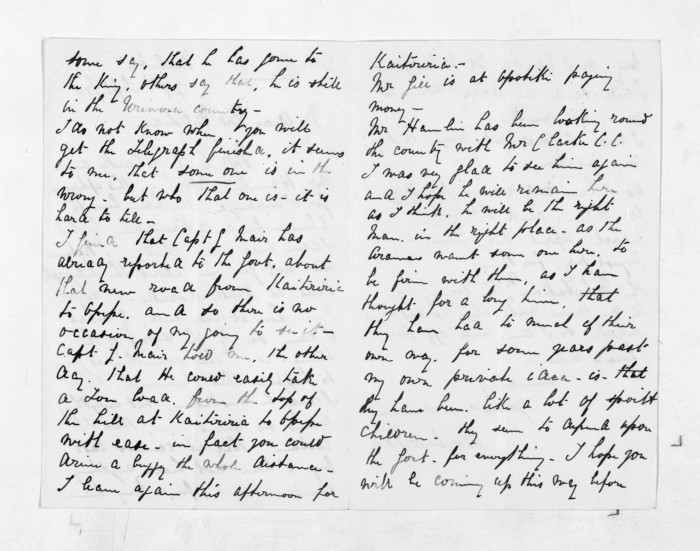 some say, that he has gone to
the King, others say that, he is still
in the Urewera country -
I do not know when, you will
get the Telegraph finished, it seems
to me, that some one is in the
wrong - but who that one is - it is
hard to tell -
I find that Capt G. Mair has
already reported to the Govt. about
that new road from Kaiteriria
to Opepe. and so there is no
occasion of my going to see it -
Capt G. Mair told me, the other
day. that He could easily take
a Ton load. from the top of
the hill at Kaiteriria to Opepe
with ease - in fact you could
drive a buggy the whole distance -
I leave again this afternoon for
Kaiteriria. -
Mr Gill is at Opotiki paying
money -
Mr Hamlin has been looking round
the country with Mr Clarke C.C.
I was very glad to see him again
and I hope he will remain here
as I think. he will be the right
Man. in the right place - as the
Arawas want some one here. to
be firm with them, as I have
thought for a long time, that
they have had to much of their
own way. for some years past
my own private idea - is - that
they have been. like a lot of spoilt
children - they seem to depend upon
the Govt. for everything - I hope you
will be coming up this way before